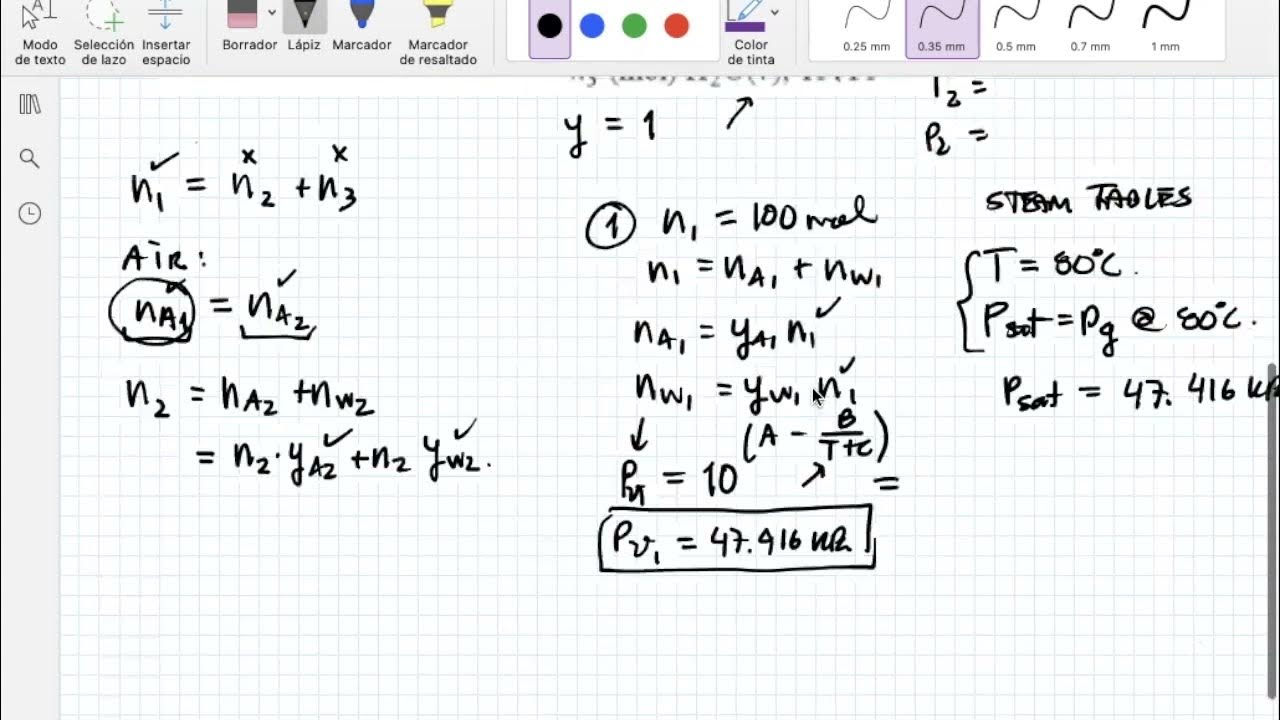 Modo de texto
Selección de lazo
Insertar espacio
Borrador
Lápiz
Marcador
Marcador de resaltado
Color de tinta
0.25 mm
0.35 mm
0.5 mm
0.7 mm
1 mm
T₂ =
P₂ =
y = 1
n₁ = n₂ + n₃
AIR:
n_A₁ = n_A₂
n₂ = n_A₂ + n_W₂
= n₂ · y_A₂ + n₂ y_W₂.
① n₁ = 100 mol
n₁ = n_A₁ + n_W₁
n_A₁ = y_A₁ n₁
n_W₁ = y_W₁ n₁
(A - B/(T+C))
= 10 =
P_v₁ = 47.416 kPa
STEAM TABLES
T = 80°C.
P_sat = P_g @ 80°C.
P_sat = 47.416